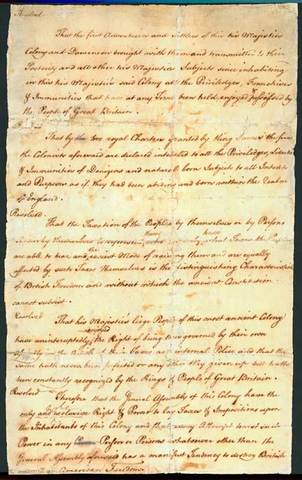 Resolved
That the first Adventurers and Settlers of this his Majesties
Colony and Dominion brought with them and transmitted to their
Posterity and all other his Majesties Subjects since inhabiting
in this his Majesties said Colony all the Priviledges, Franchises
& Immunities that have at any Time been held, enjoyed, & possessed by
the People of Great Britain.
That by the two royal Charters granted by King James the first
the Colonists aforesaid are declared intituled to all the Priviledges, Liberties
& Immunities of Denizens and natural born Subjects to all Intents
and Purposes as if they had been abiding and born within the Realm
of England.
Resolved
That the Taxation of the People by themselves or by Persons
chosen by themselves to represent them who can only know what Taxes the People
are able to bear and the easiest Mode of raising them and are equally
affected by such Taxes themselves is the distinguishing Characteristick
of British Freedom and without which the ancient Constitution
cannot subsist.
Resolved
That his Majesties liege People of this most ancient Colony
have uninterruptedly enjoyed the Right of being thus governed by their own
Assembly in the Article of their Taxes and internal Police and that the
same hath never been forfeited or any other Way given up but hath
been constantly recognized by the Kings & People of Great Britain.
Resolved
Therefore that the General Assembly of this Colony have the
only and exclusive Right & Power to lay Taxes & Impositions upon
the Inhabitants of this Colony and that every Attempt to vest such
Power in any Person or Persons whatsoever other than the
General Assembly aforesaid has a manifest Tendency to destroy British
as well as American Freedom